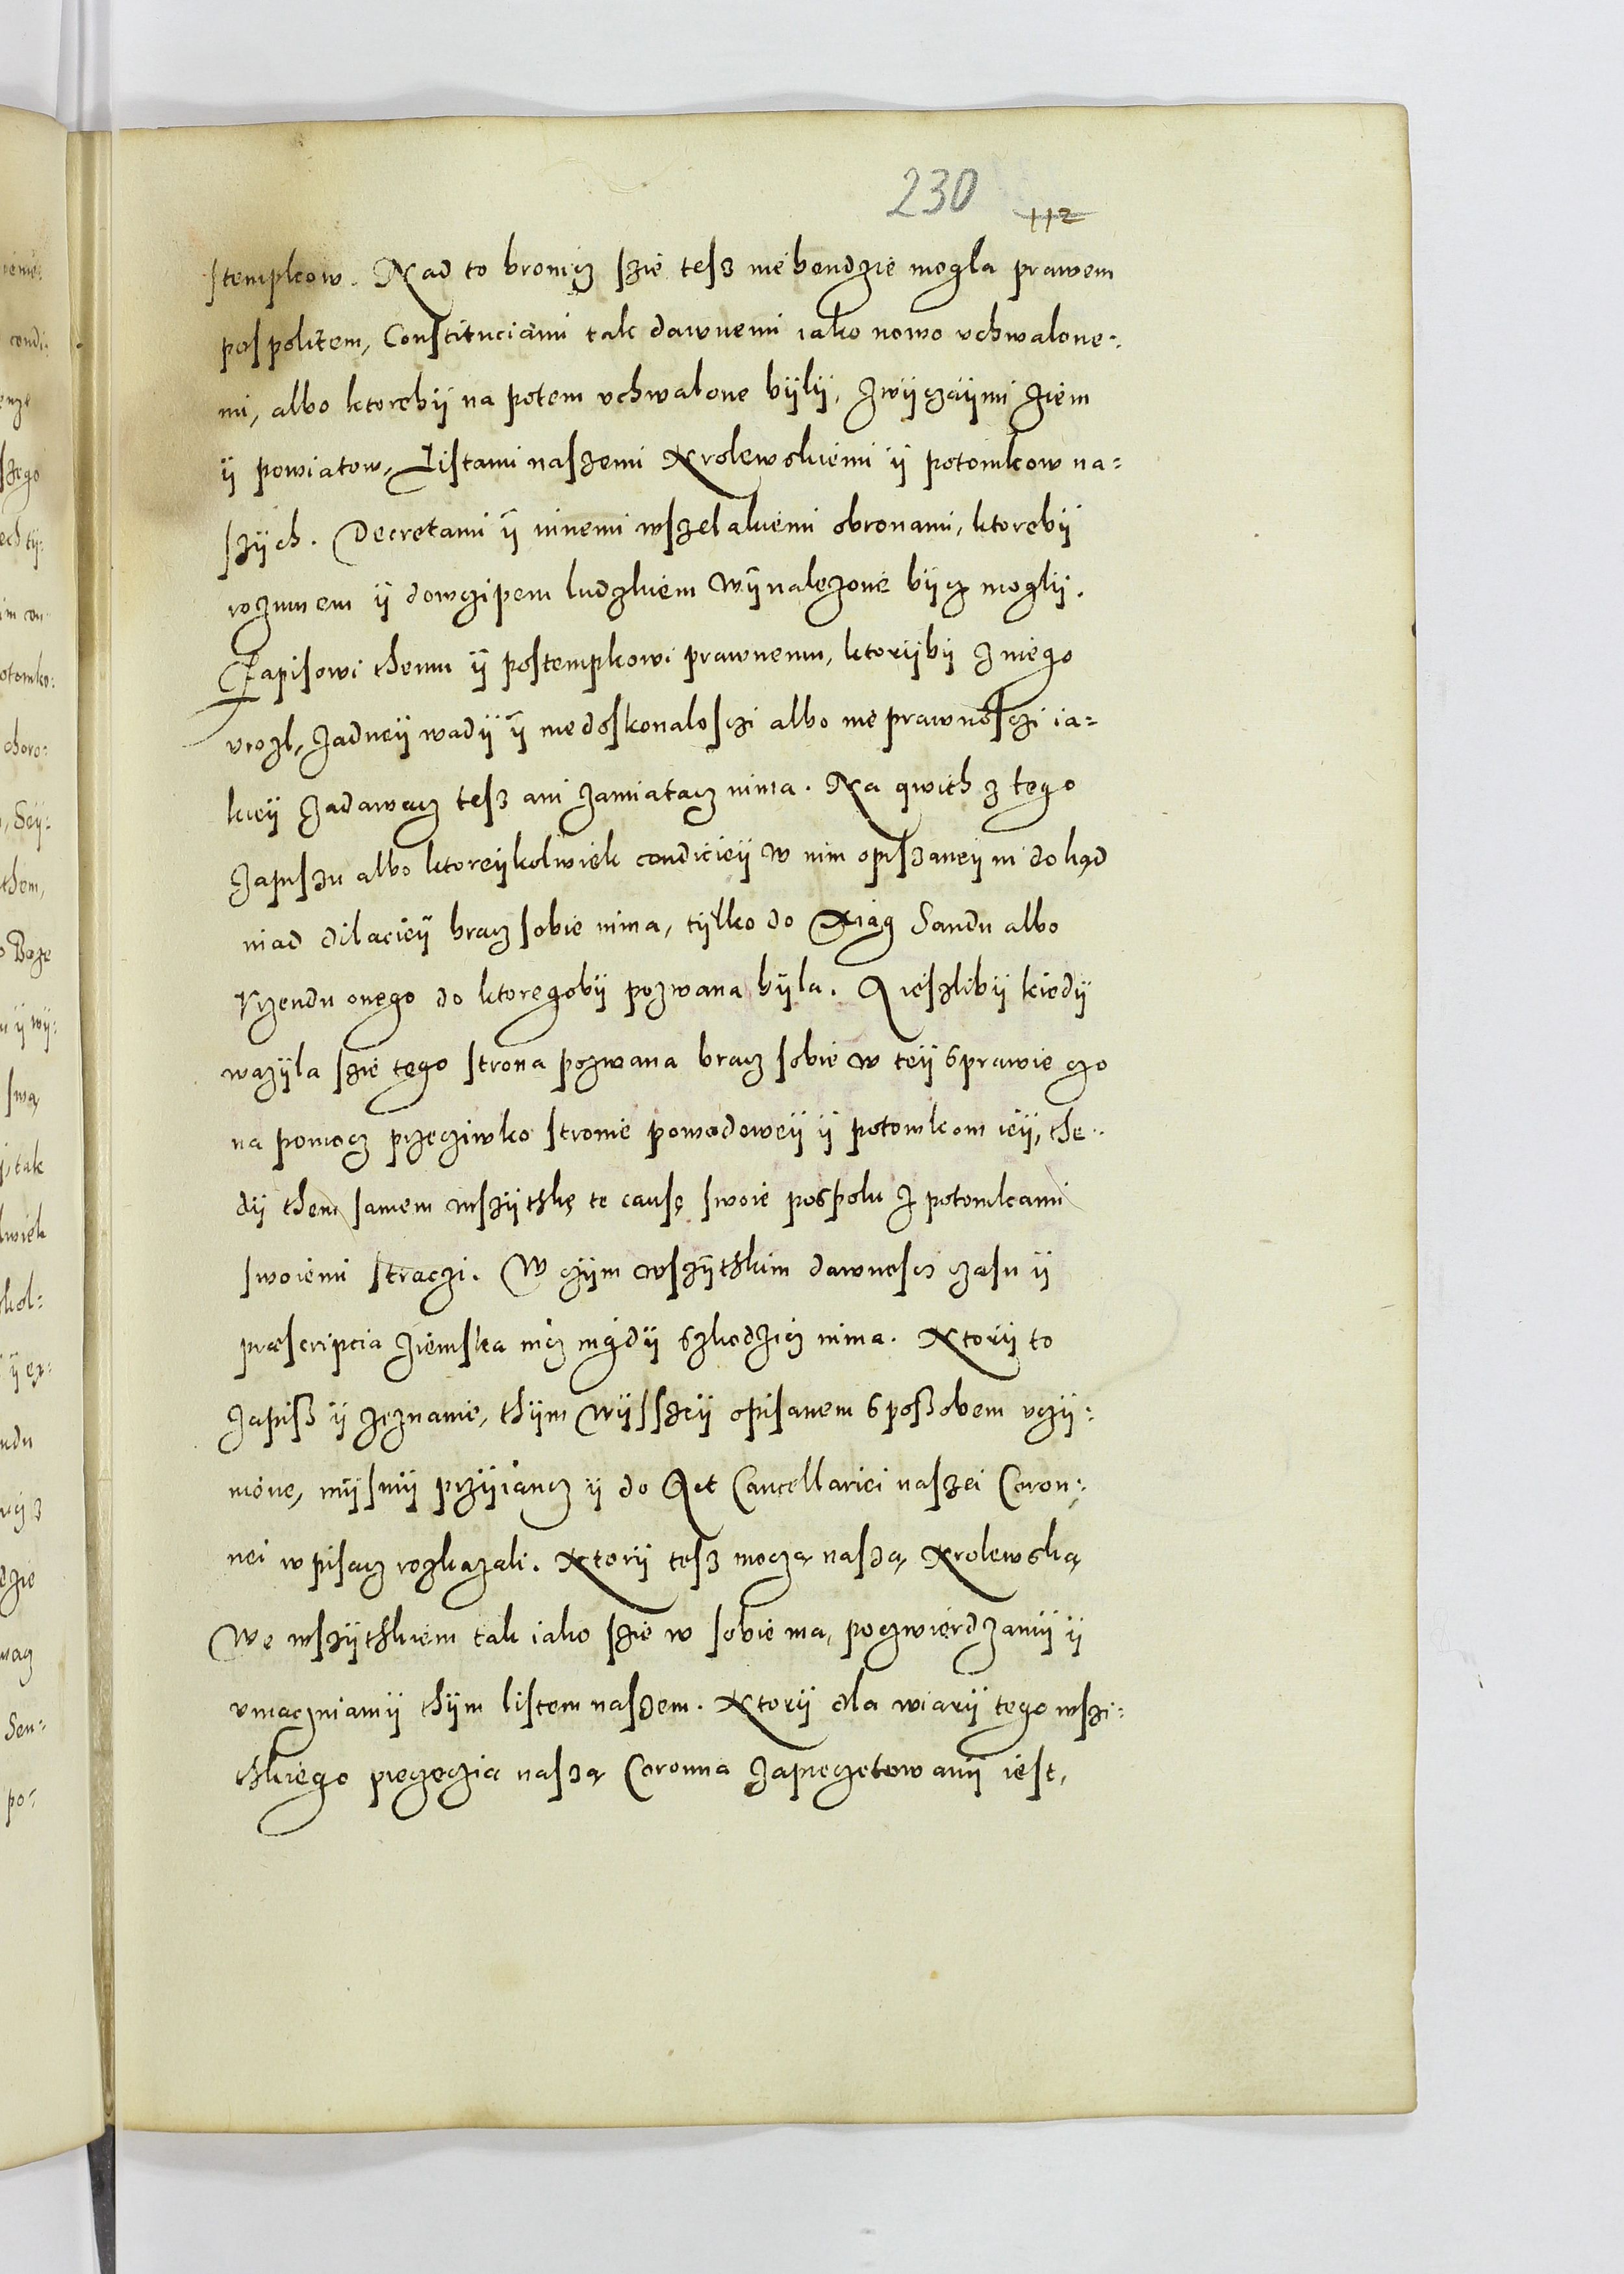 230 112
stempkow. Nad to bronicz szie tesz nie bendzie mogla prawem
pospolitem, Constituciami tak dawnemi iako nowo vchwalone-
mi, albo ktorebÿ na potem vchwalone bÿlÿ, zwÿczaÿmi ziem
ÿ powiatow, Listami naszemi Krolewskiemi ÿ potomkow na=
szÿch. Decretami ÿ ninemi wszelakiemi obronami, ktorebÿ
rozumem ÿ dowczipem ludzkiem wÿnalezone bÿcz moglÿ.
Zapisowi themu ÿ postempkowi prawnemu, ktorÿbÿ z niego
vrozl, zadneÿ wadÿ ÿ niedoskonalosczi albo nieprawnosczi ia=
kieÿ zadawacz tesz ani zamiatacz nima. Na qwith z tego
zapiszu albo ktoreÿkolwiek condicieÿ w nim opiszaneÿ ni dokąd
niad dilacieÿ bracz sobie nima, tÿlko do Xiąg Sandu albo
Vrzendu onego do ktoregobÿ pozwana bÿla. A ieszlibÿ kiedÿ
wazÿla szie tego strona pozwana bracz sobie w teÿ sprawie czo
na pomocz przeciwko stronie powodoweÿ ÿ potomkom ieÿ, the-
dÿ them samem wszÿthkę te causę swoie pospolu z potomkami
swoiemi straczi. W czÿm wszÿthkim dawnoscz czasu ÿ
præscripcia ziemska nicz nigdÿ szkodzicz nima. Ktorÿ to
zapisz ÿ zeznanie, thÿm wÿsszeÿ opisanem sposzobem vczÿ-
nione, mÿsmÿ przÿiąncz ÿ do Act Cancellariei naszei Coron-
nei wpisacz rozkazali. Ktorÿ tesz moczą naszą Krolewską
We wszÿthkiem tak iako szie w sobie ma, poczwierdzamÿ ÿ
vmaczniamÿ thÿm listem naszem. Ktorÿ dla wiarÿ tego wszi-
thkiego pieczeczia naszą Coronna zapieczetowanÿ iest,